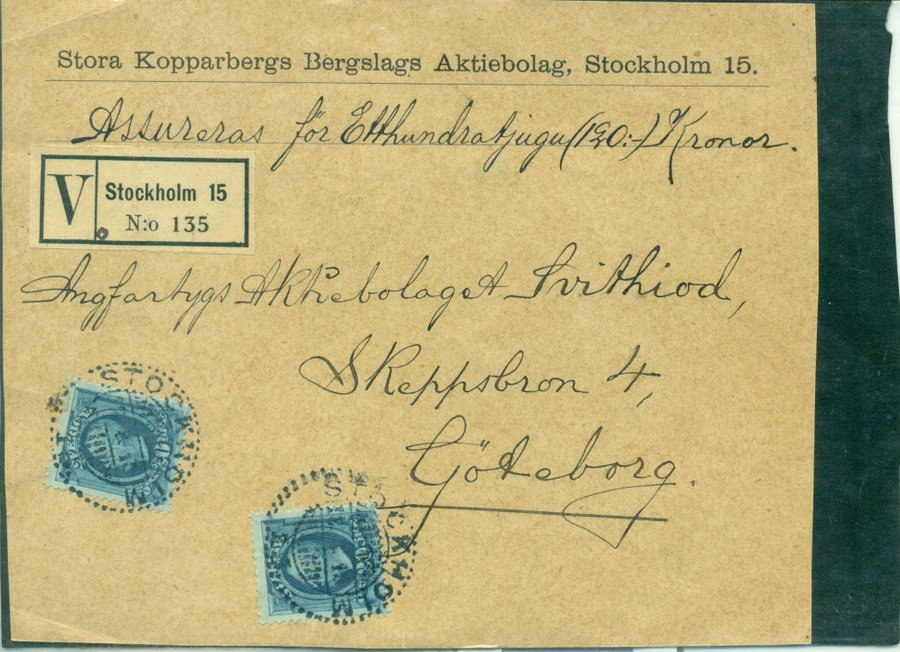 Stora Kopparbergs Bergslags Aktiebolag, Stockholm 15.
Assureras för Etthundratjugu (120:-) Kronor.
V
Stockholm 15
N:o 135
Ångfartygs Aktiebolaget Svithiod,
Skeppsbron 4,
Göteborg.
STOCKHOLM
SVERIGE
STOCKHOLM